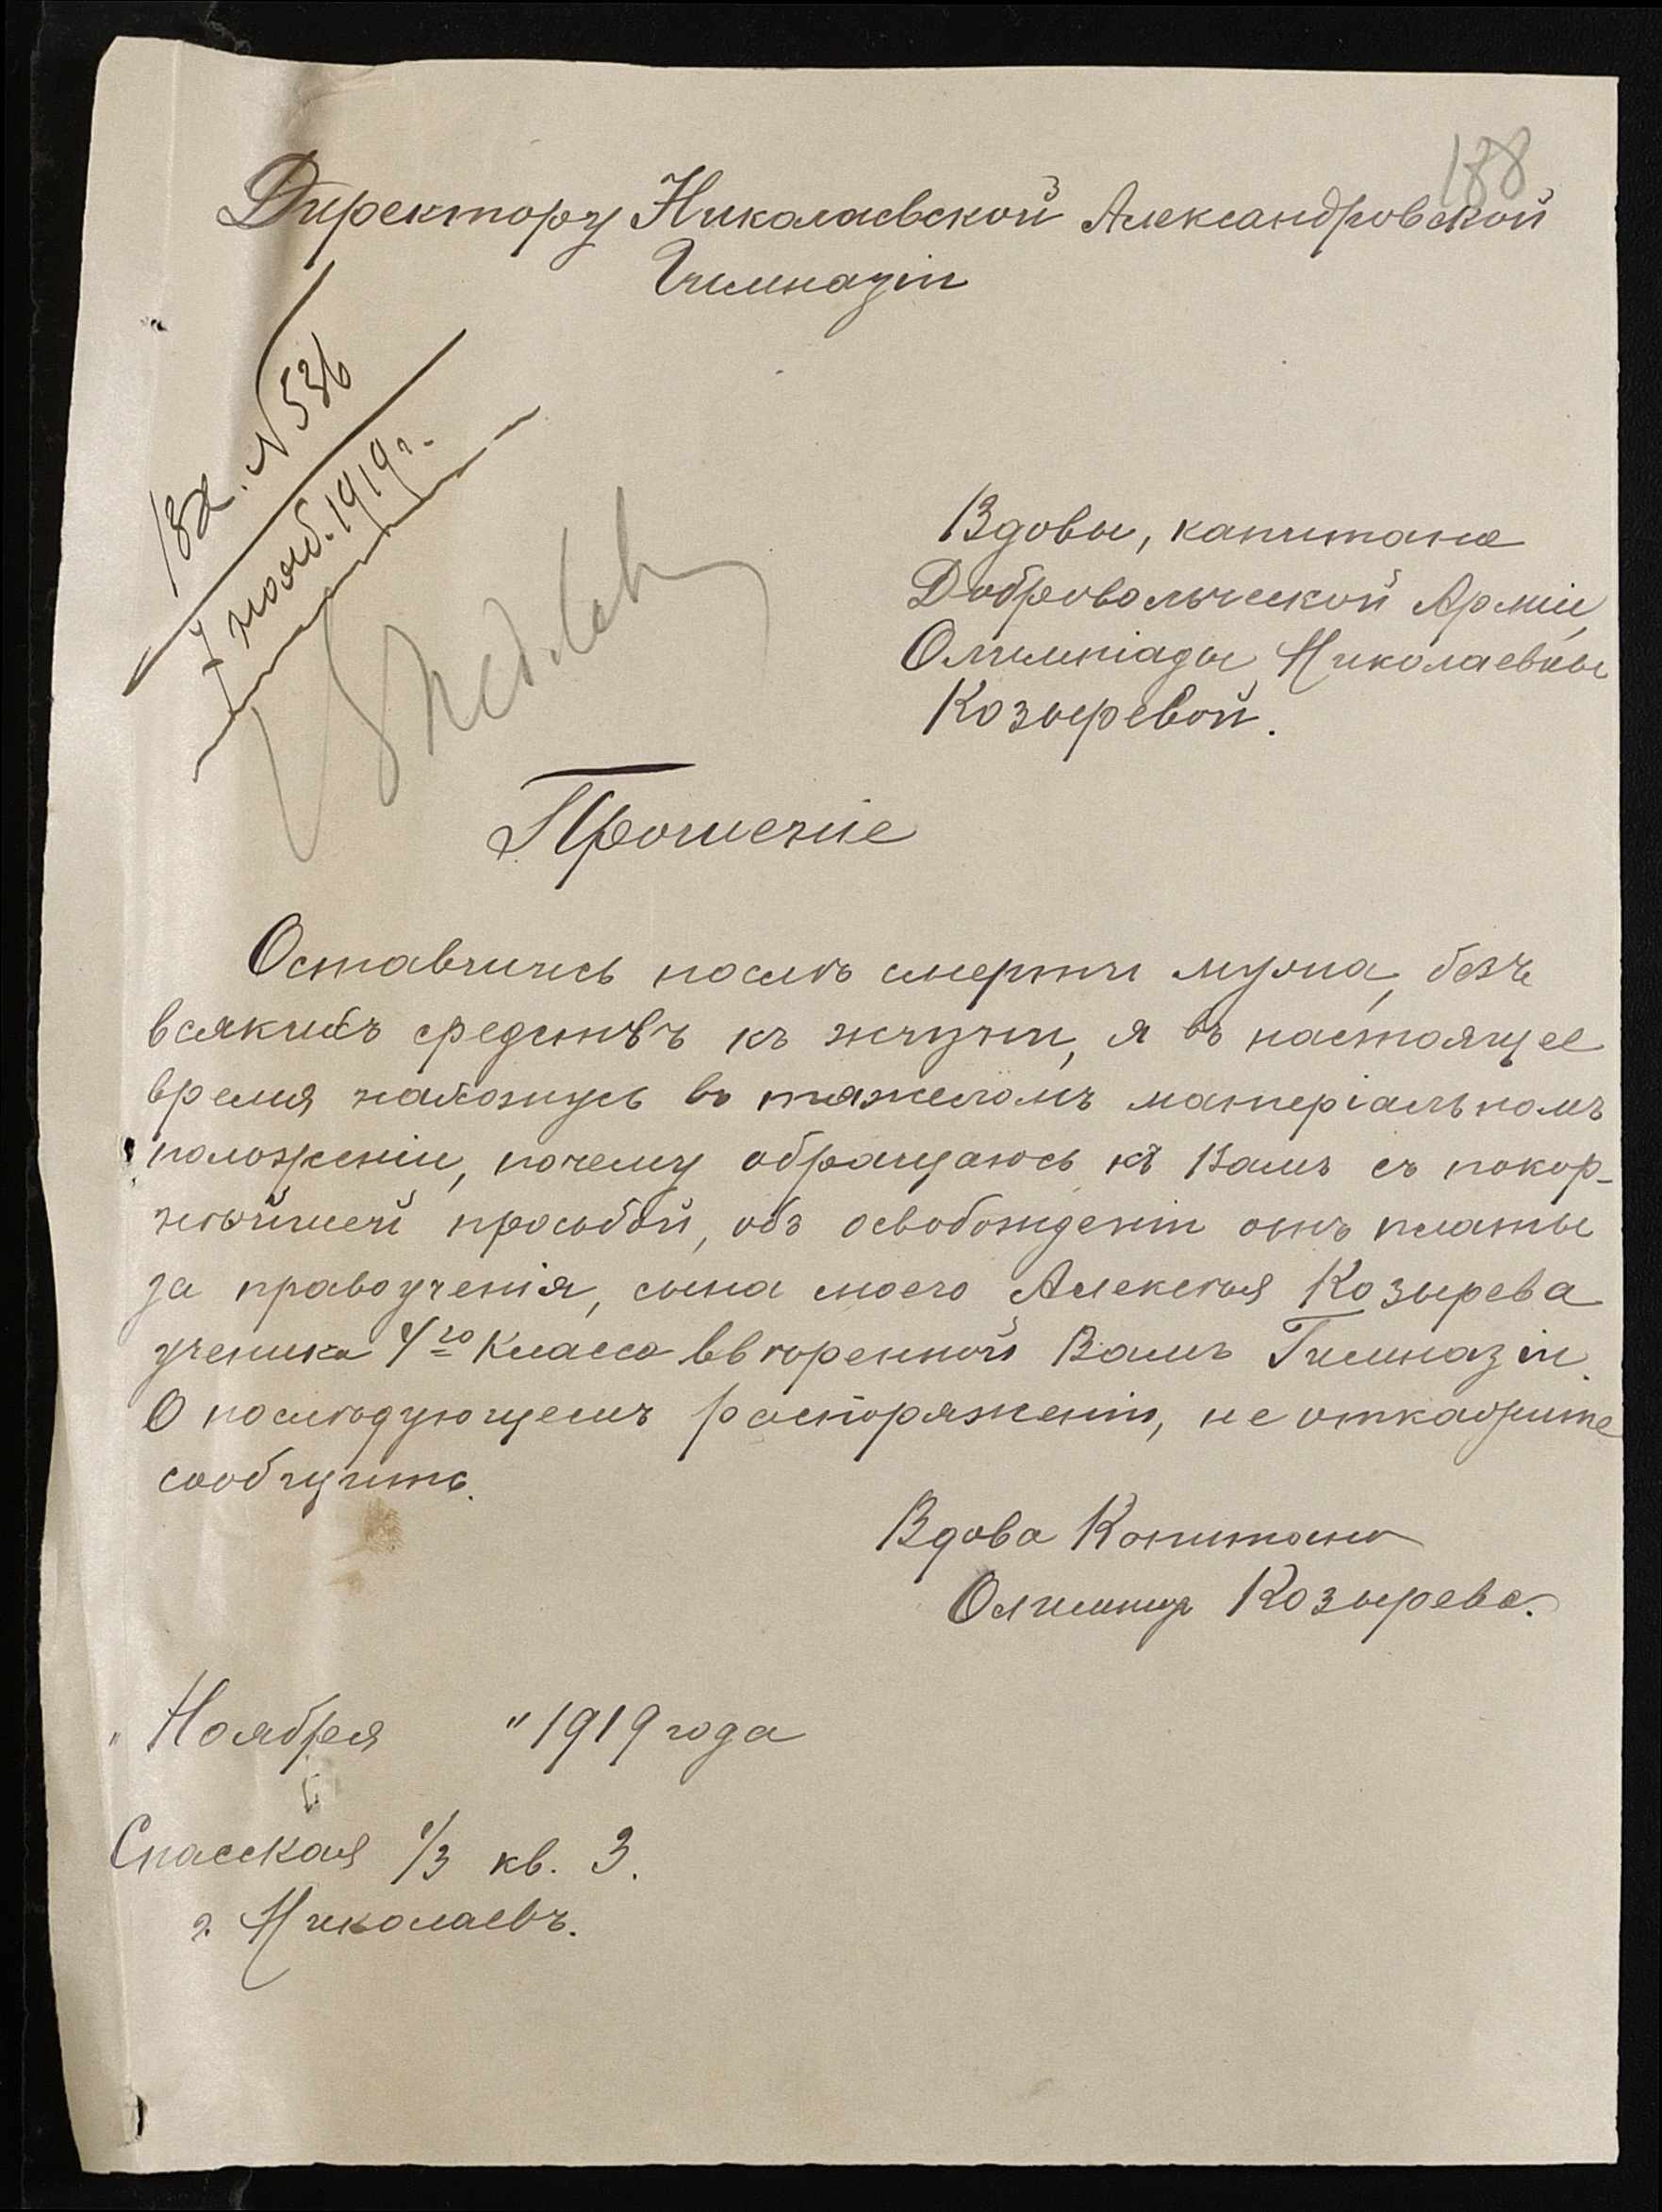 188
Директору Николаевской Александровской
Гимназіи
Вх. № 536
7 нояб. 1919 г.
Вдовы, капитана
Добровольческой Арміи,
Олимпіады Николаевны
Козыревой.
Прошеніе
Оставшись послѣ смерти мужа, безъ
всякихъ средствъ къ жизни, я въ настоящее
время нахожусь въ тяжеломъ матеріальномъ
положеніи, почему обращаюсь къ Вамъ съ покор-
нѣйшей просьбой, объ освобожденіи отъ платы
за правоученія, сына моего Алексѣя Козырева
ученика 4го Класса ввѣренной Вамъ Гимназіи.
О послѣдующемъ распоряженіи, не откажите
сообщить.
Вдова Капитана
Козырева.
" Ноября " 1919 года
Спасская 1/3 кв. 3.
г. Николаевъ.